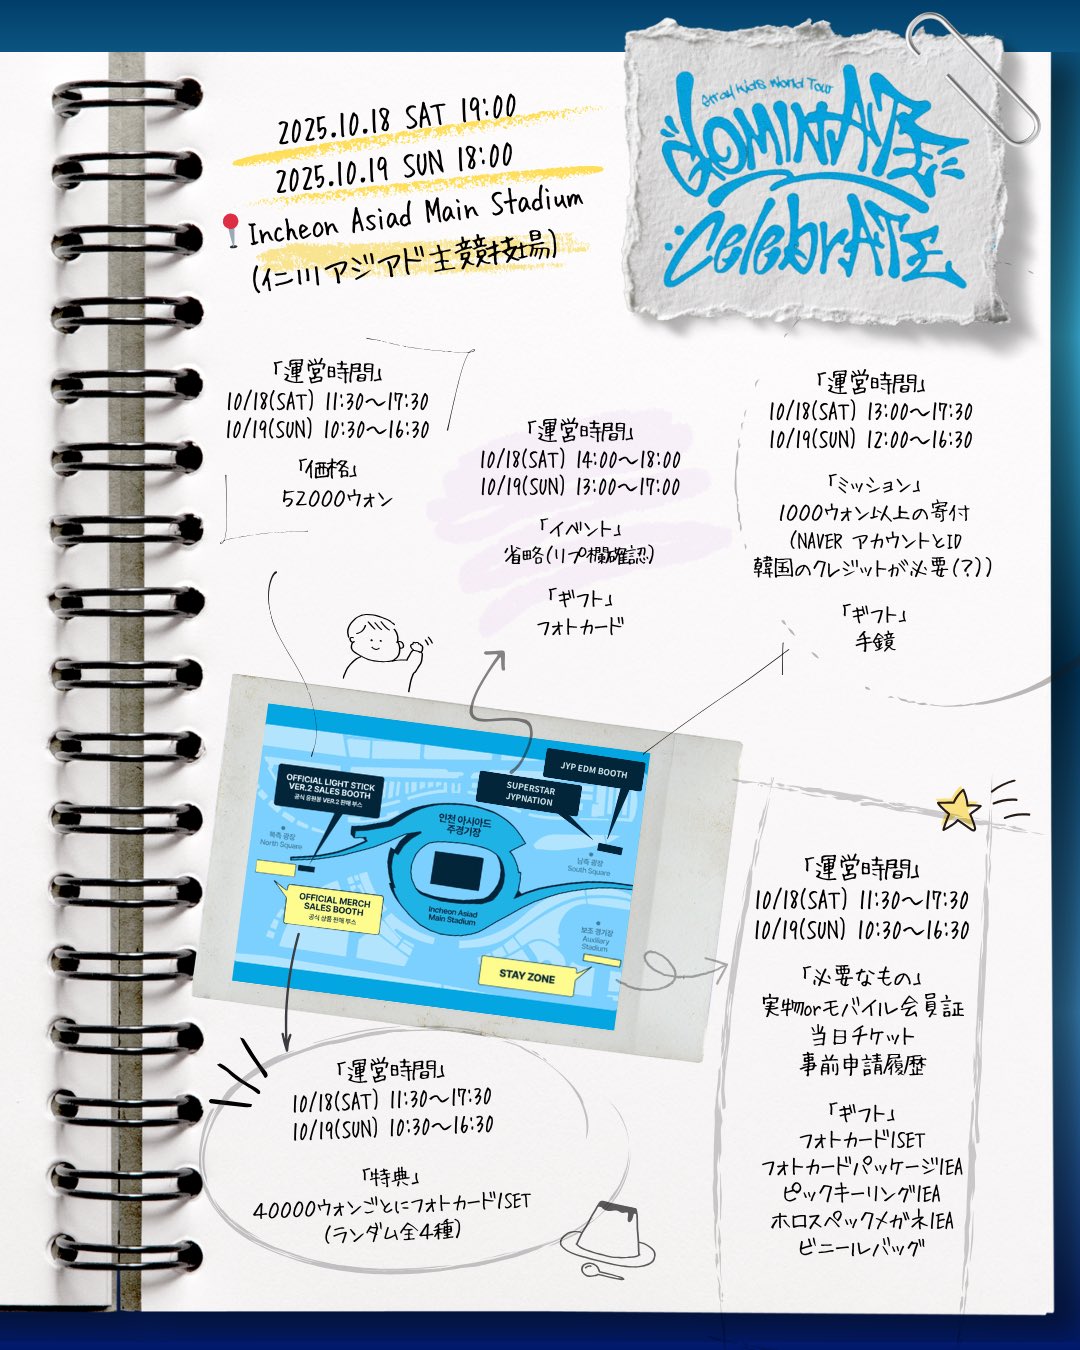 2025.10.18 SAT 19:00
2025.10.19 SUN 18:00
Incheon Asiad Main Stadium
(仁川アジアド主競技場)
Stray Kids World Tour
dominATE
celebrATE
「運営時間」
10/18(SAT) 11:30〜17:30
10/19(SUN) 10:30〜16:30
「価格」
52000ウォン
「運営時間」
10/18(SAT) 14:00〜18:00
10/19(SUN) 13:00〜17:00
「イベント」
省略(リプ欄確認)
「ギフト」
フォトカード
「運営時間」
10/18(SAT) 13:00〜17:30
10/19(SUN) 12:00〜16:30
「ミッション」
1000ウォン以上の寄付
(NAVER アカウントとID
韓国のクレジットが必要(?))
「ギフト」
手鏡
OFFICIAL LIGHT STICK
VER.2 SALES BOOTH
공식 응원봉 VER.2 판매 부스
SUPERSTAR
JYPNATION
JYP EDM BOOTH
북측 광장
North Square
인천 아시아드
주경기장
남측 광장
South Square
OFFICIAL MERCH
SALES BOOTH
공식 상품 판매 부스
Incheon Asiad
Main Stadium
보조 경기장
Auxiliary
Stadium
STAY ZONE
「運営時間」
10/18(SAT) 11:30〜17:30
10/19(SUN) 10:30〜16:30
「特典」
40000ウォンごとにフォトカード1SET
(ランダム全4種)
「運営時間」
10/18(SAT) 11:30〜17:30
10/19(SUN) 10:30〜16:30
「必要なもの」
実物orモバイル会員証
当日チケット
事前申請履歴
「ギフト」
フォトカード1SET
フォトカードパッケージ1EA
ピックキーリング1EA
ホロスペックメガネ1EA
ビニールバッグ